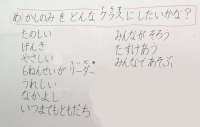 めかしのみをどんなクラスにしたいかな?
たのしい
げんき
やさしい
6ねんせいがリーダー
うれしい
なかよし
いつまでもともだち
みんながそろう
たすけあう
みんなであそぶ